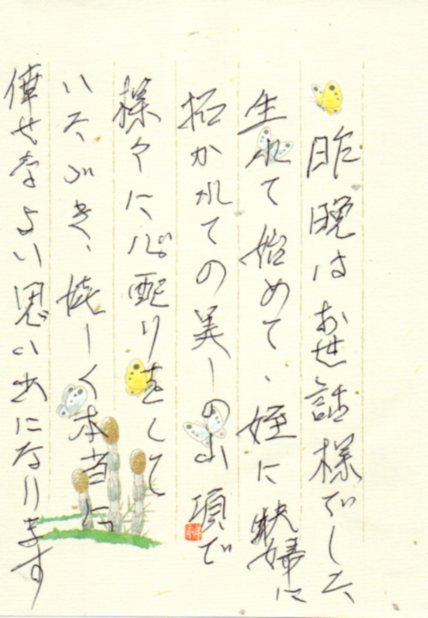 昨晩はお世話様でした
生れて始めて、姪に夫婦に
招かれての美しの山頂で
様々に心配りをして
いただき、嬉しく本当に
倖せなよい思い出になります